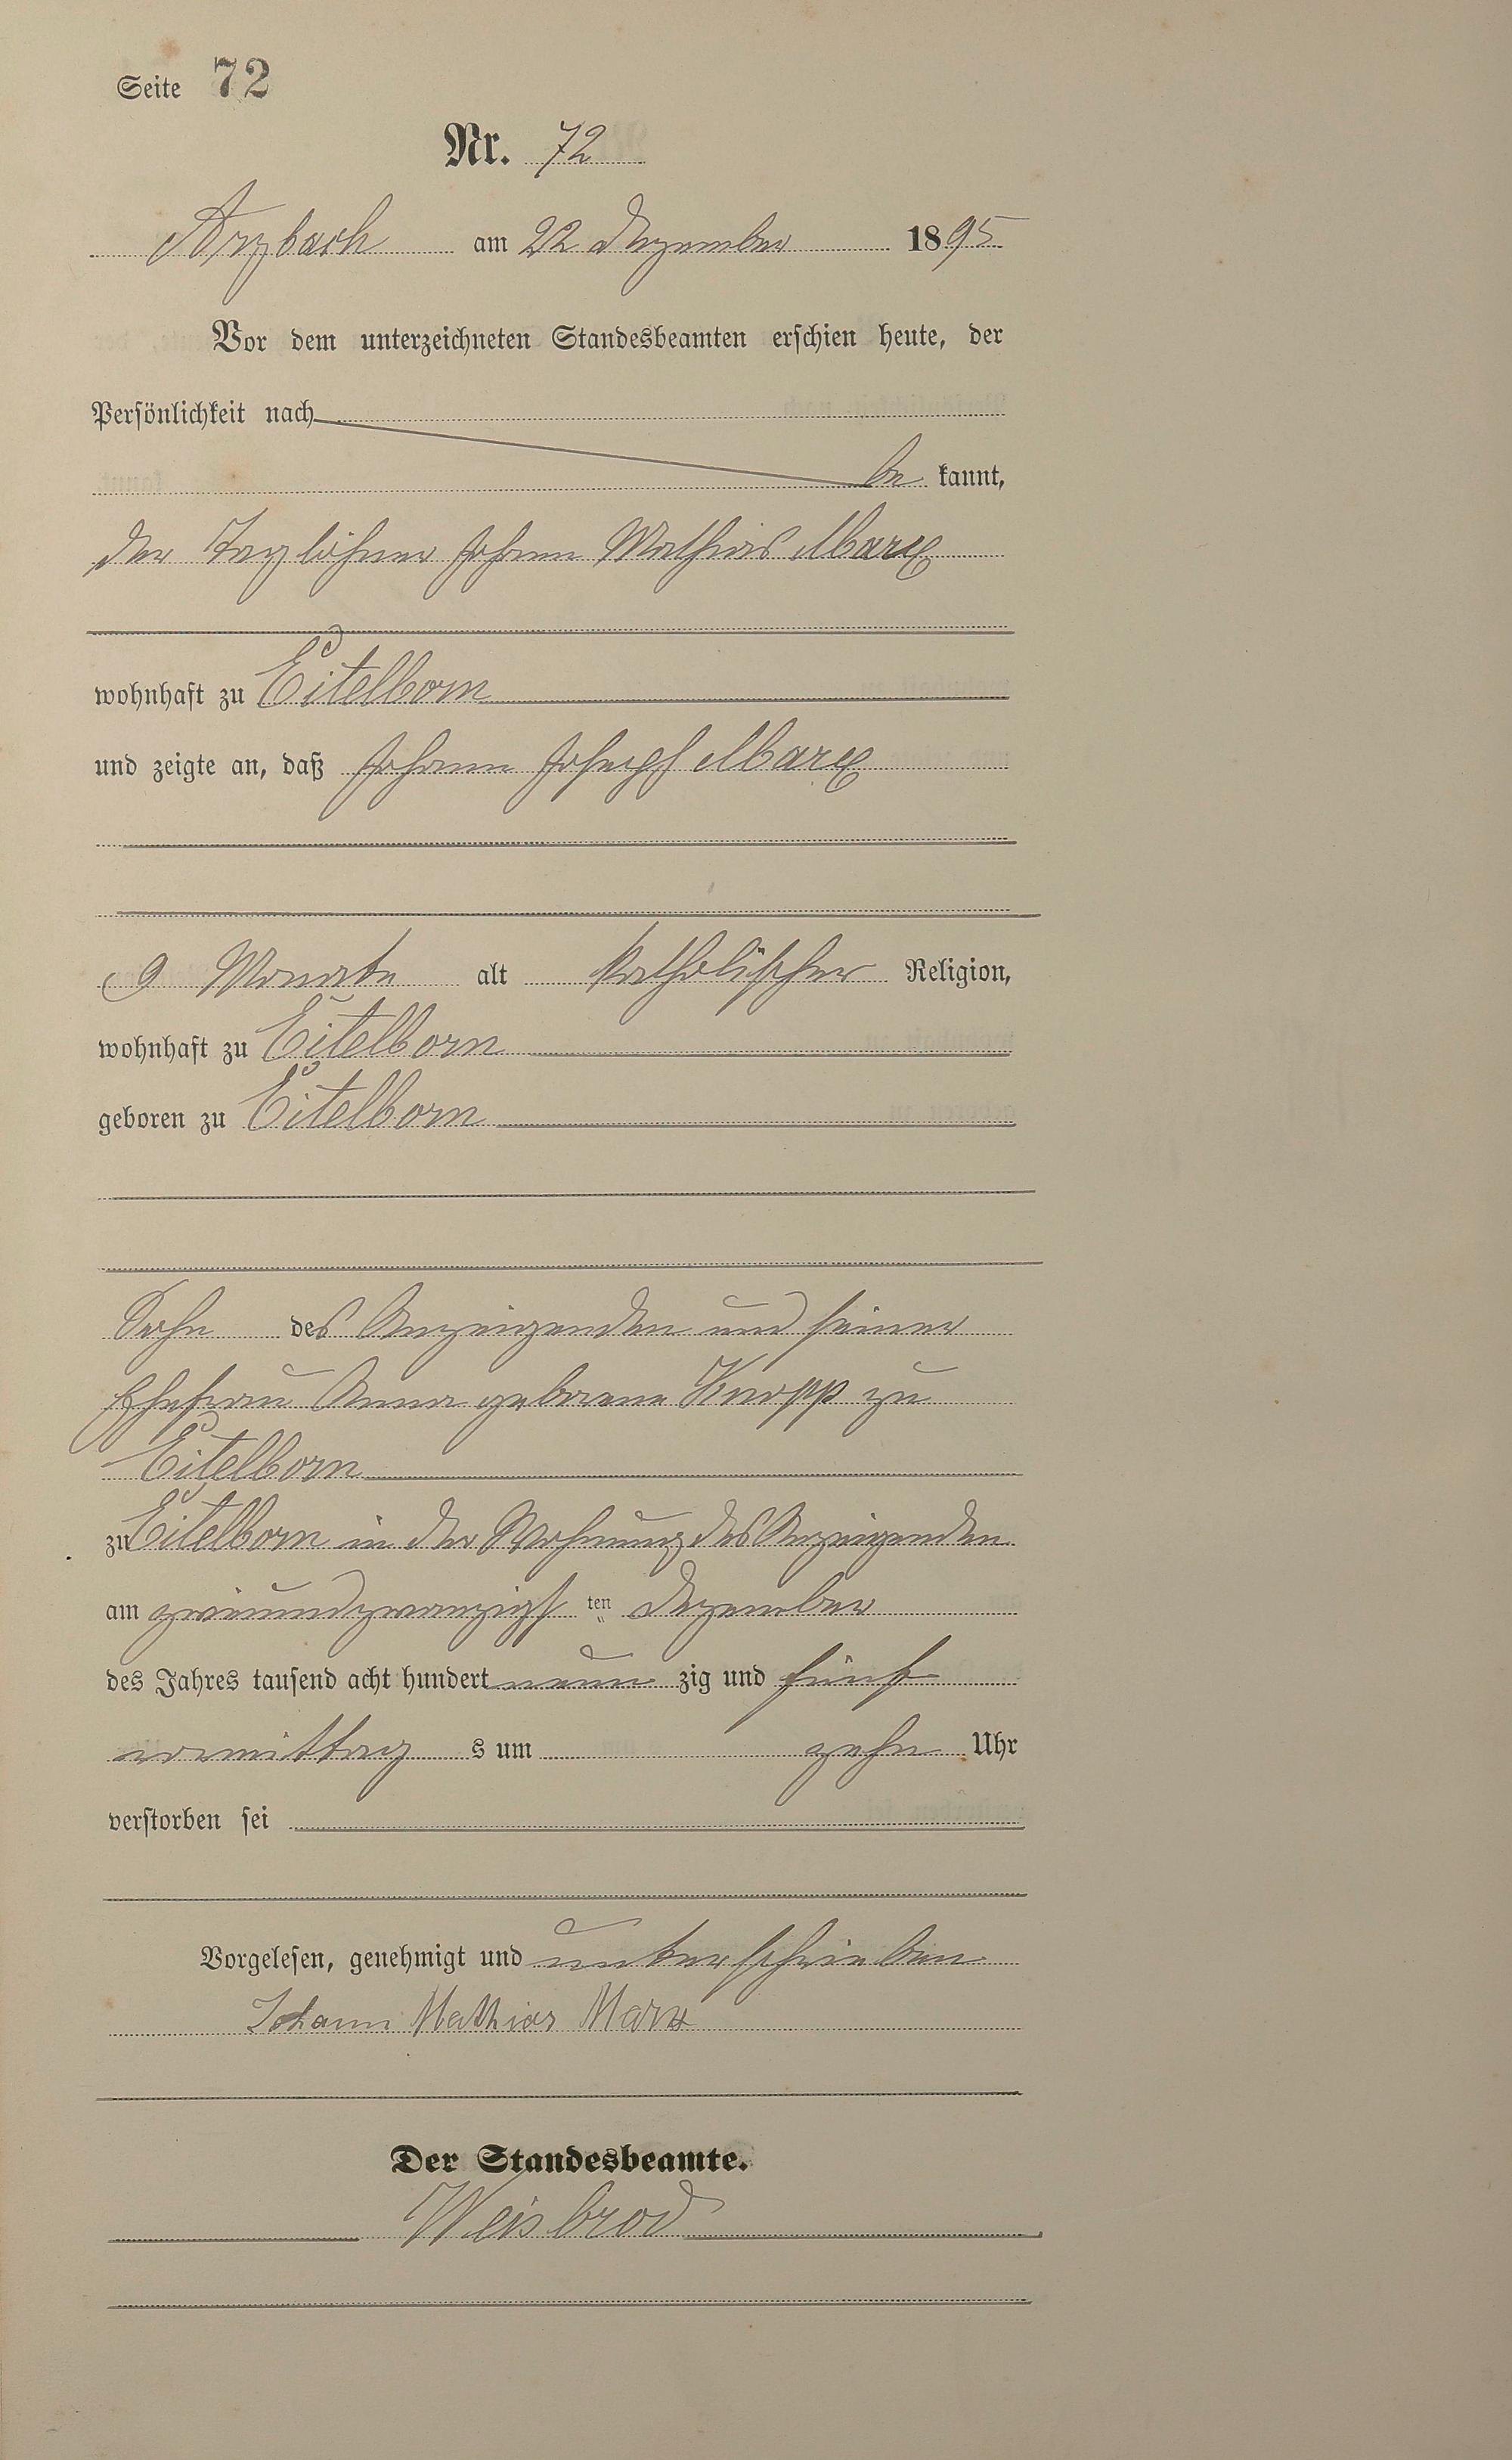 Seite 72
Nr. 72
Arzbach am 22 Dezember 1895
Vor dem unterzeichneten Standesbeamten erschien heute, der
Persönlichkeit nach
be kannt,
der Taglöhner Johann Mathias Marx
wohnhaft zu Eitelborn
und zeigte an, daß Johann Joseph Marx
9 Monate alt katholischer Religion,
wohnhaft zu Eitelborn
geboren zu Eitelborn
Sohn des Anzeigenden und seiner
Ehefrau Anna geborene Knopp zu
Eitelborn
zu Eitelborn in der Wohnung des Anzeigenden
am zweiundzwanzigs ten Dezember
des Jahres tausend acht hundert neun zig und fünf
vormittag s um zehn Uhr
verstorben sei
Vorgelesen, genehmigt und unterschrieben
Johann Mathias Marx
Der Standesbeamte.
Weisbrod